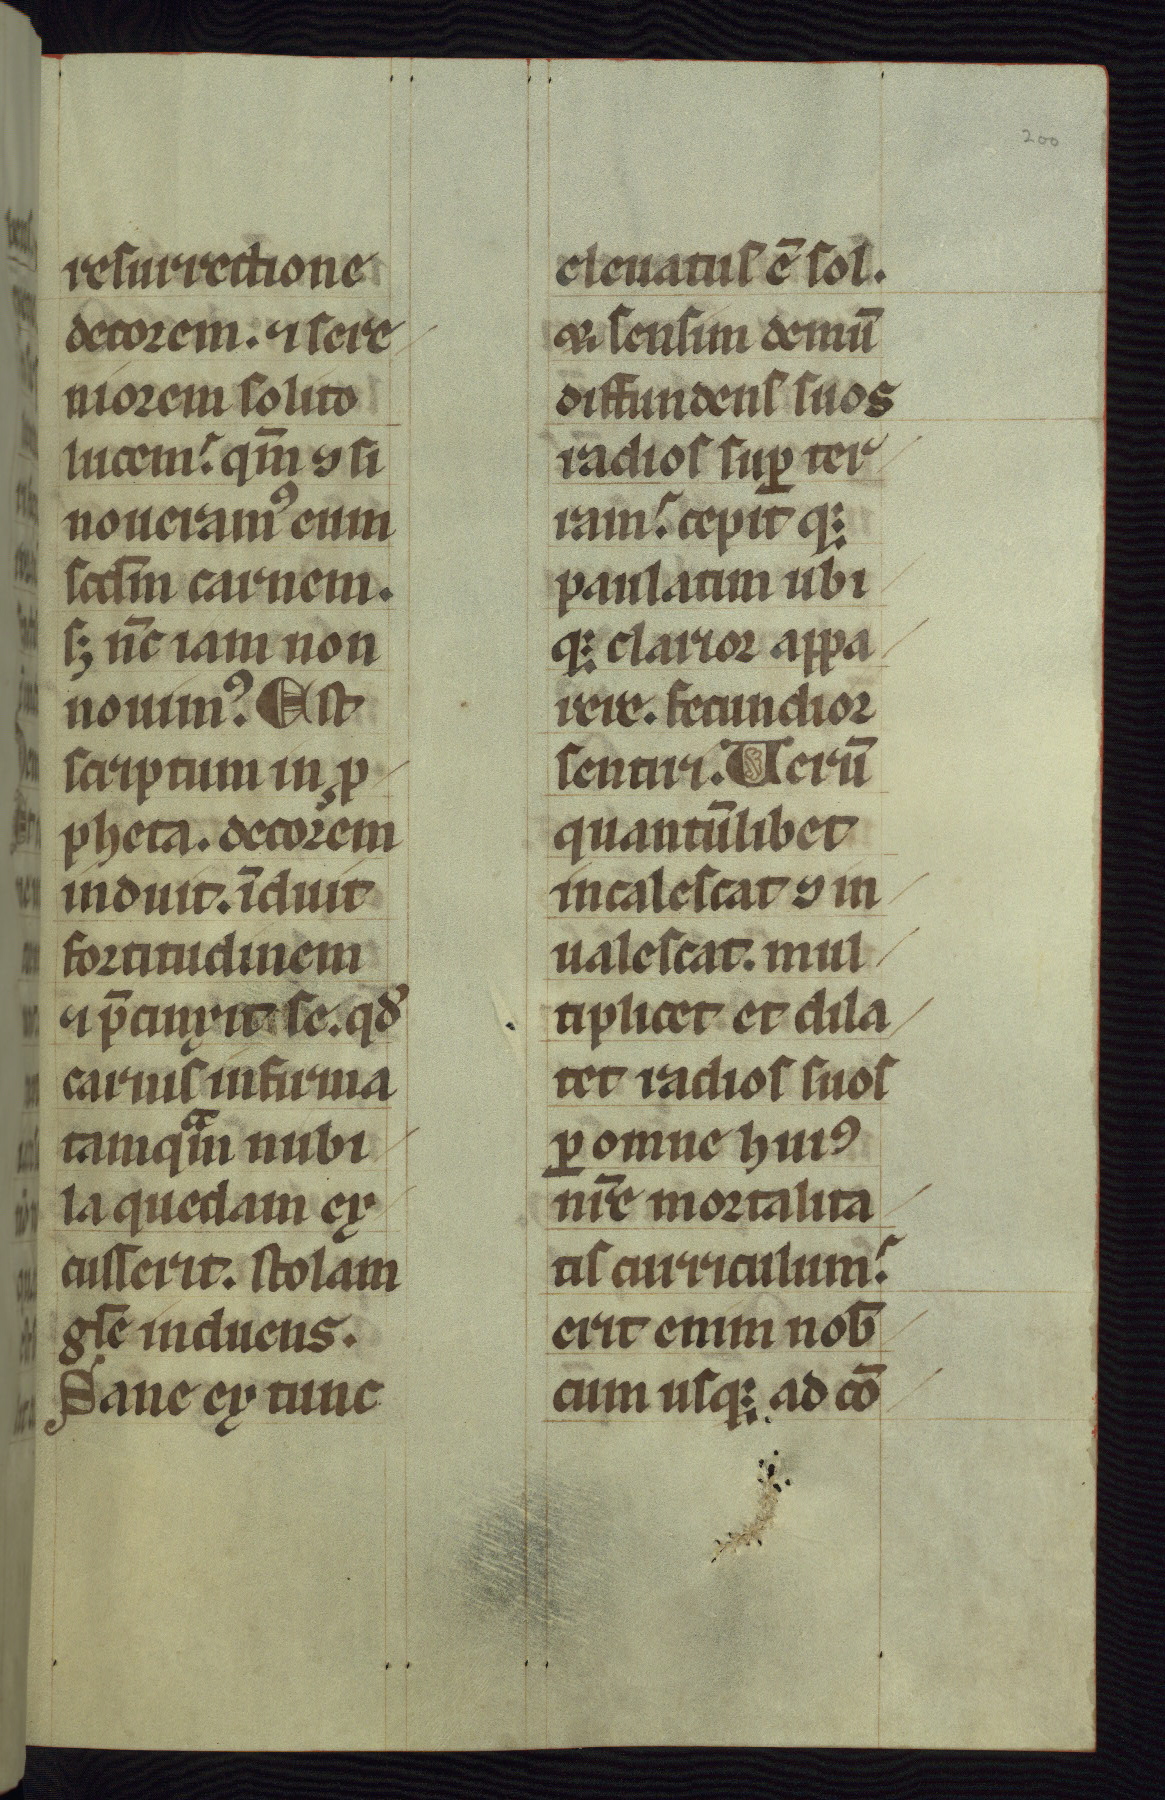 200
resurrectione
decorem. ⁊ sere
niorem solito
lucem: qm̄ ꝯ si
noueramꝰ eum
scd̄m carnem.
sꝫ nc̄ iam non
nouimꝰ. Est
scriptum in ꝓ
pheta. decorem
induit. īduit
fortitudinem
⁊ p̄cinxit se. qd̕
carnis infirma
tamqᵃm nubi
la quedam ex
cusserit. stolam
gl̄e induens.
Sane ex tunc
eleuatus ē sol.
⁊ sensim demū
diffundens suos
radios suꝑ ter
ram: cepit qꝫ
paulatim ubi
qꝫ clarior appa
rere. fecundior
sentiri. Uerū
quantūlibet
incalescat ꝯ in
ualescat. mul
tiplicet et dila
tet radios suos
ꝑ omne huiꝰ
nr̄e mortalita
tis curriculum:
erit enim nob̄
cum usqꝫ ad cō